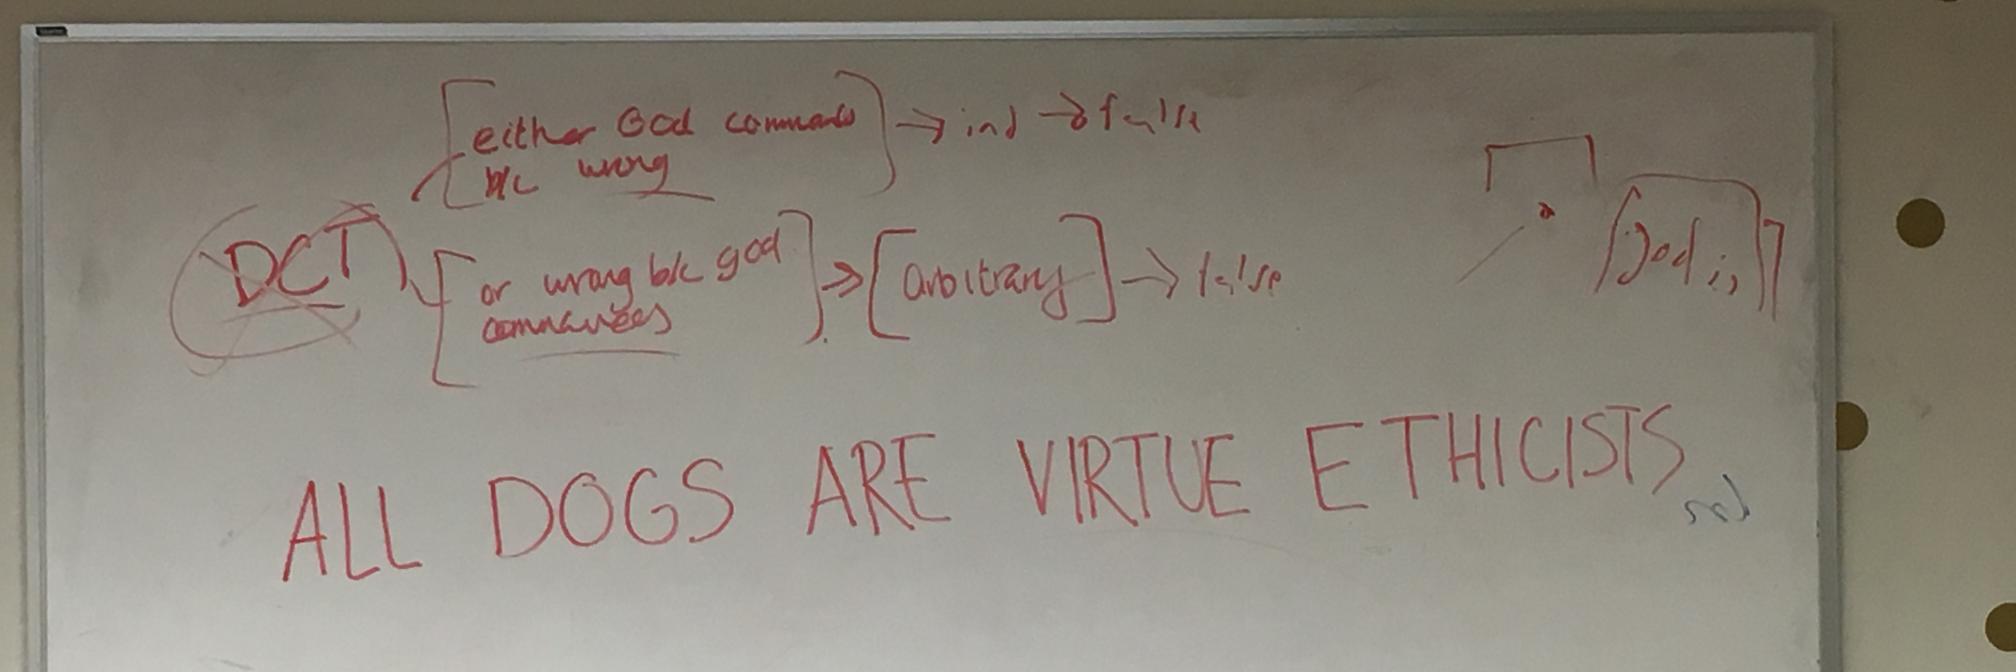 either God commands → ind → false
b/c wrong
DCT
or wrong b/c god → [arbitrary] → false
commands
God is
ALL DOGS ARE VIRTUE ETHICISTS